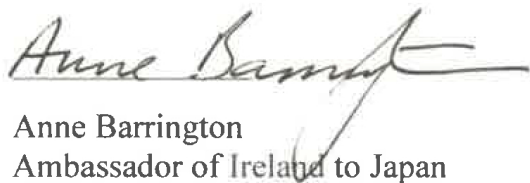 Anne Barrington
Anne Barrington
Ambassador of Ireland to Japan